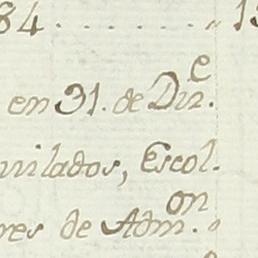 84 . . . . . . . . „ 13
en 31. de Dizᵉ.
uilados, Escol.
res de Admᵒⁿ.